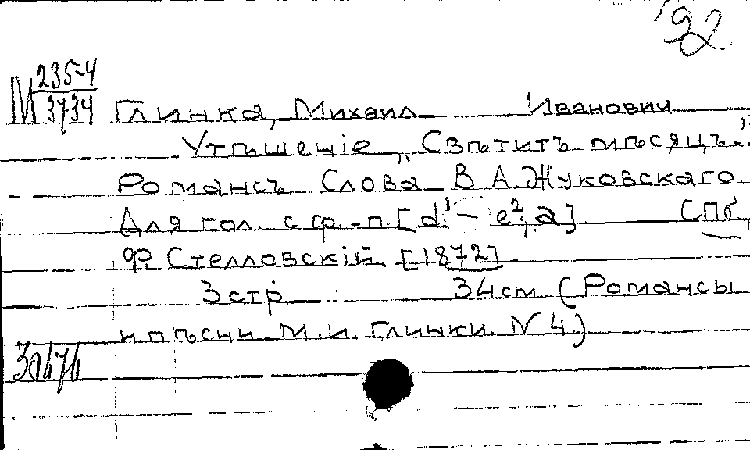 92
М 235-4
3734
Глинка, Михаил Иванович
Утѣшеніе „Свѣтитъ мѣсяцъ".
Романсъ Слова В А Жуковскаго
Для гол. с фр-п [d¹ – e², a] СПб,
Ф Стелловскій [1872]
3 стр 34 см (Романсы
и пѣсни М. И. Глинки N 4)